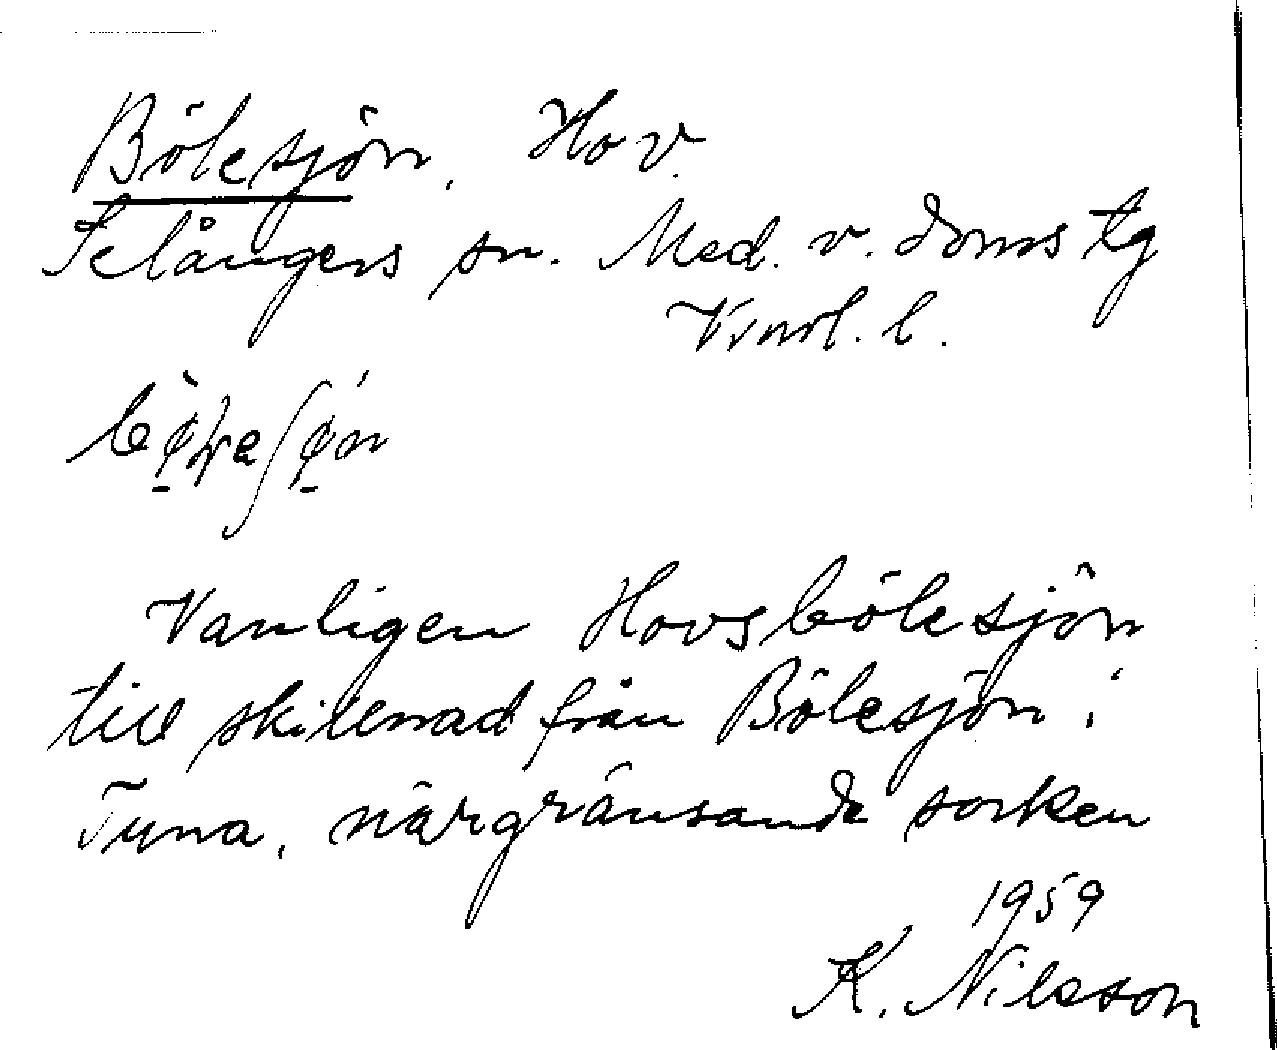 Bölesjön, Hov.
Selångers sn. Med. v. doms tg
Vnorl. l.
Vanligen Hovsbölesjön
till skillnad från Bölesjön i
Tuna, närgränsande socken
1959
K. Nilsson